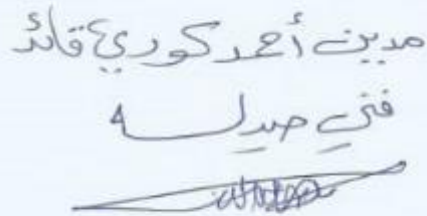 مدين أحمد كوري قائد
فني صيدله